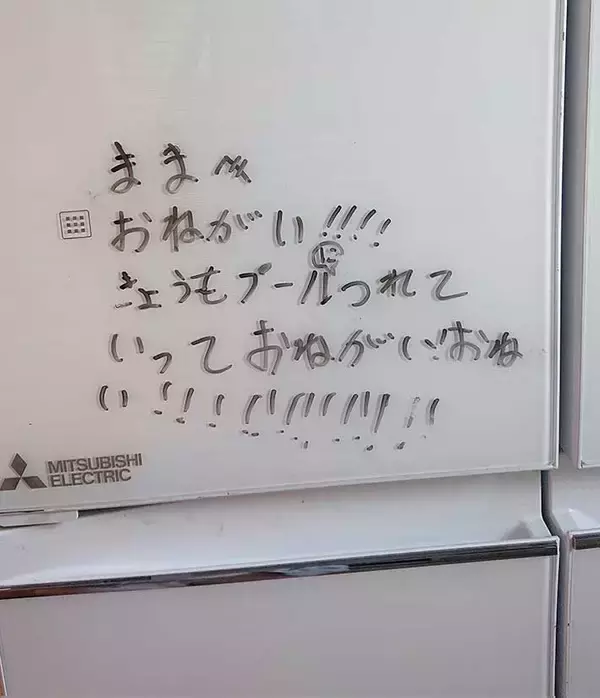 ままへ
おねがい!!!!
きょうもプールにつれて
いっておねがい!おね
い!!!!!!!!!!!!!!
MITSUBISHI
ELECTRIC